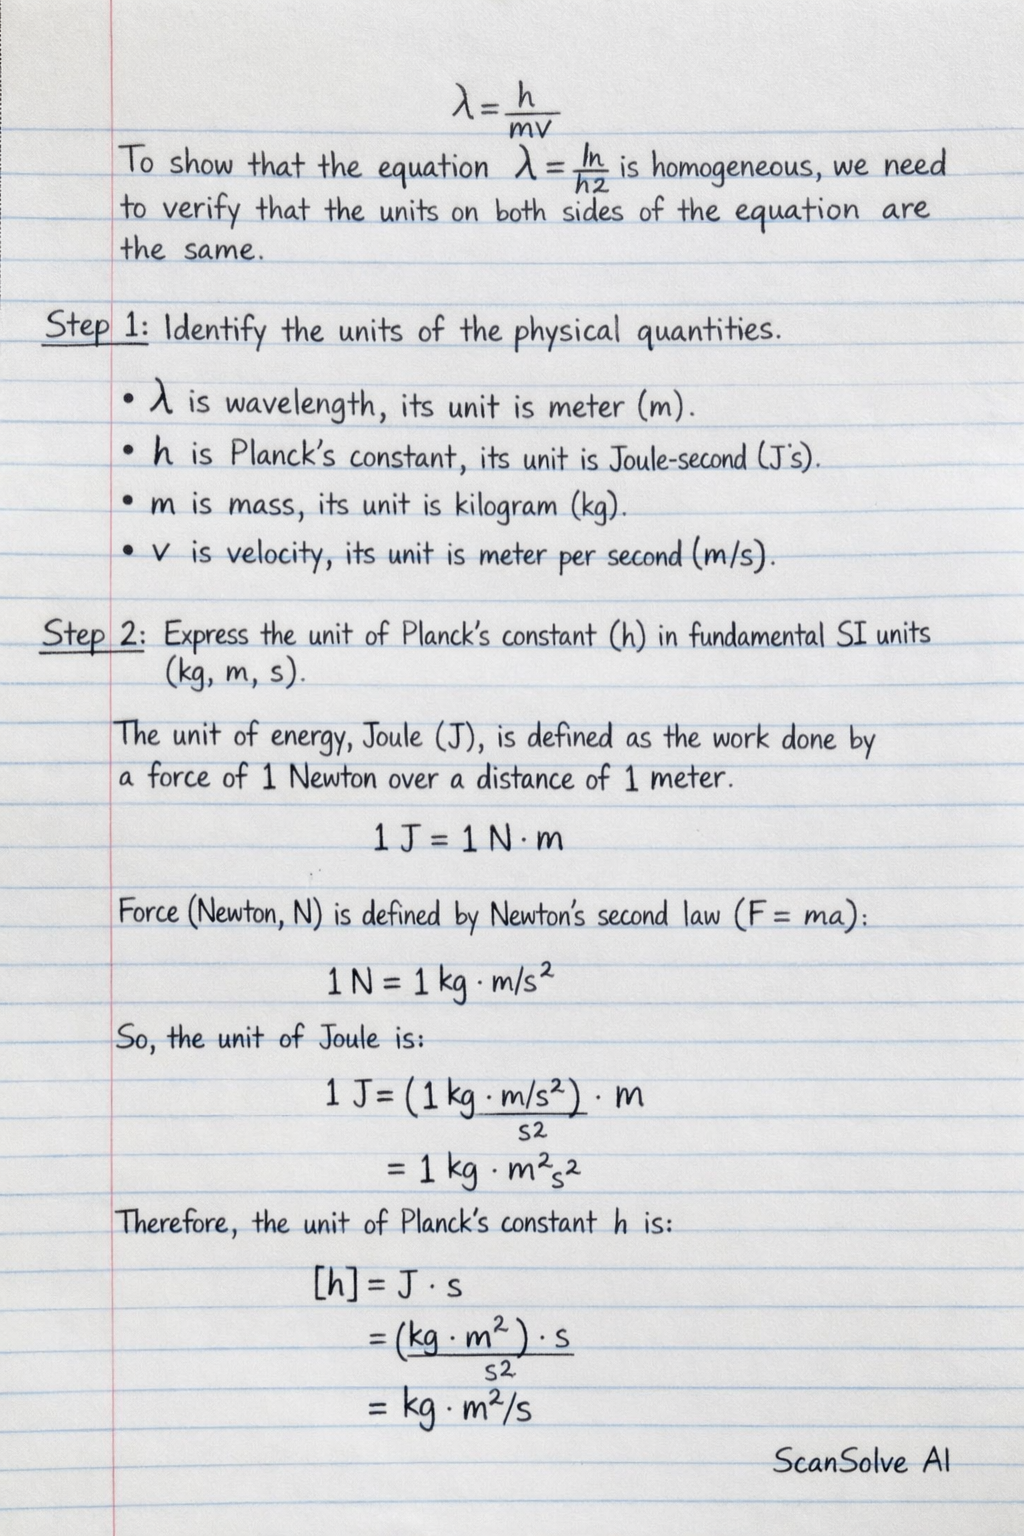 λ = h/mv
To show that the equation λ = ln/h2 is homogeneous, we need
to verify that the units on both sides of the equation are
the same.
Step 1: Identify the units of the physical quantities.
• λ is wavelength, its unit is meter (m).
• h is Planck's constant, its unit is Joule-second (J·s).
• m is mass, its unit is kilogram (kg).
• v is velocity, its unit is meter per second (m/s).
Step 2: Express the unit of Planck's constant (h) in fundamental SI units
(kg, m, s).
The unit of energy, Joule (J), is defined as the work done by
a force of 1 Newton over a distance of 1 meter.
1 J = 1 N · m
Force (Newton, N) is defined by Newton's second law (F = ma):
1 N = 1 kg · m/s²
So, the unit of Joule is:
1 J = (1 kg · m/s²) · m
s2
= 1 kg · m²s²
Therefore, the unit of Planck's constant h is:
[h] = J · s
= (kg · m²) · s
s2
= kg · m²/s
ScanSolve AI